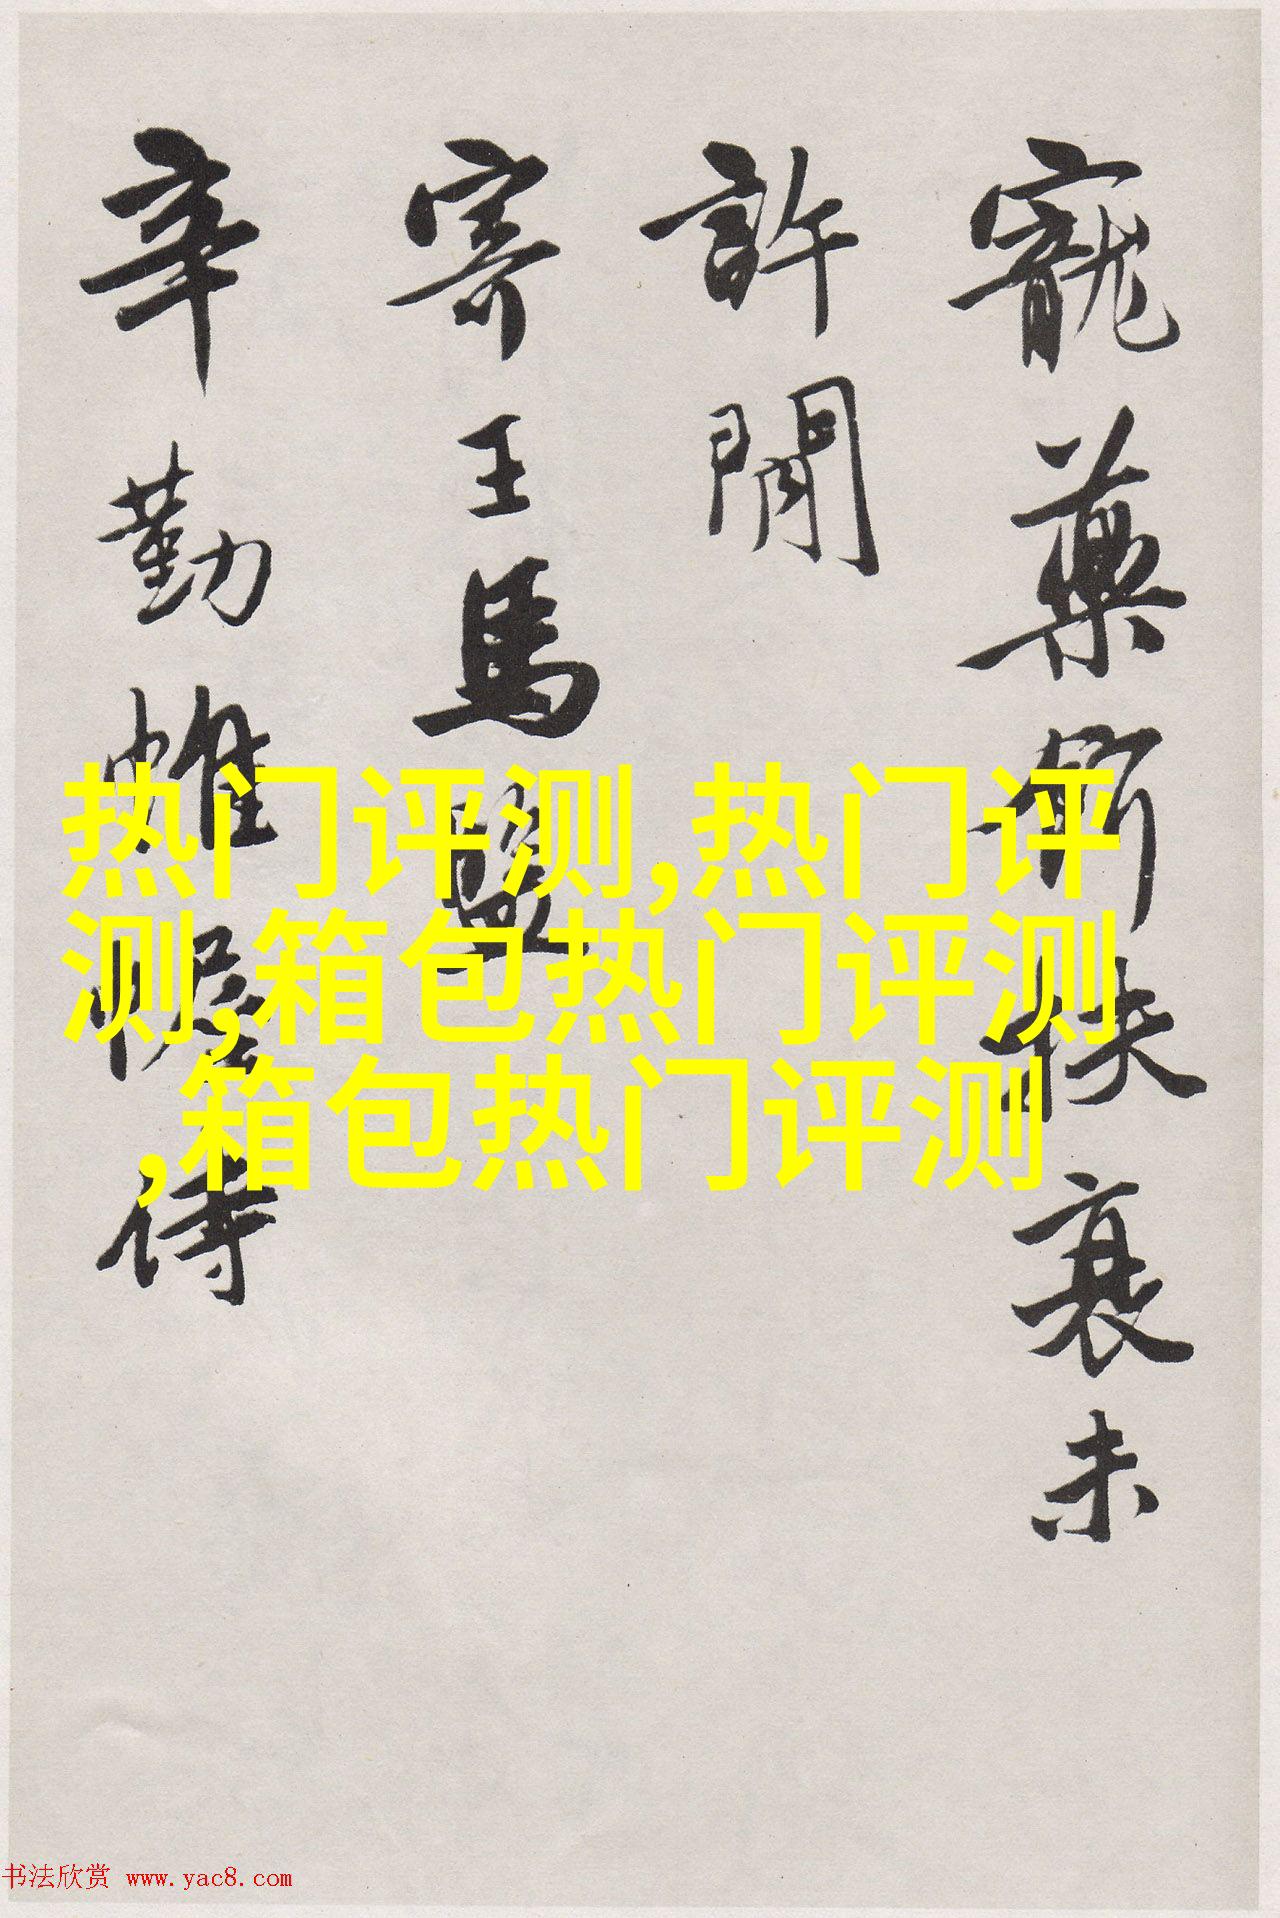 寵藥斷扶衰未
許閒
寄王馬盟
辛勤帷幄侍
热门评测,热门评
测,箱包热门评测
,箱包热门评测
书法欣赏 www.yac8.com